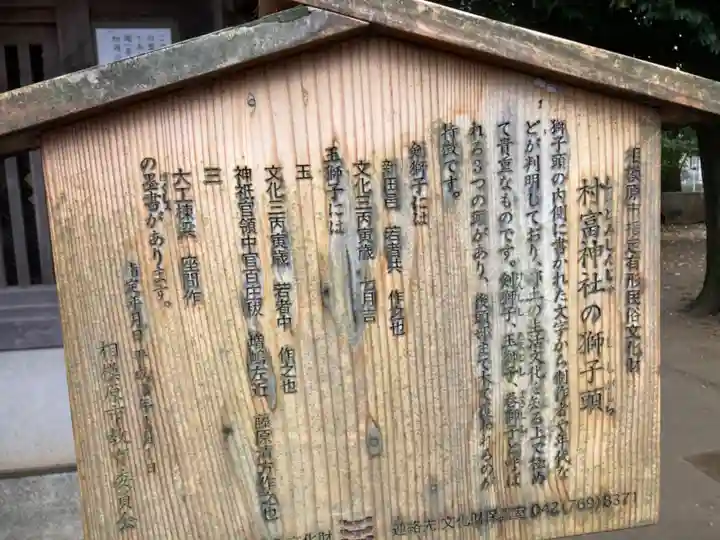 相模原市指定有形民俗文化財
村富神社の獅子頭
獅子頭の内側に書かれた文字から制作者や年代な
どが判明しており、郷土の生活文化を知る上で極め
て貴重なものです。剣獅子、玉獅子、巻獅子と呼ば
れる3つの頭があり、後頭部まで木で作られるのが
特徴です。
剣獅子には
新田宮 若者共 作之也
文化三丙寅歳 七月吉
玉獅子には
玉
文化三丙寅歳 若者中 作之也
神祇官領中官百庄 増嶋左近 藤原 作之也
三
大工棟梁 座間作
の墨書があります。
指定年月日 平成
相模原市教育委員会
文化財
連絡先 文化財保護室 042(769)8371